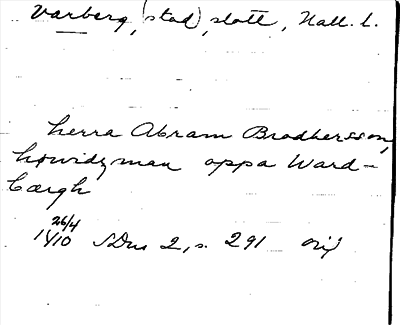 Varberg, (stad), slott, Hall. l.
herra Abram Brodhersson,
høwidzman oppa Ward-
bærgh
26/4
1410 SDns 2, s. 291 orig